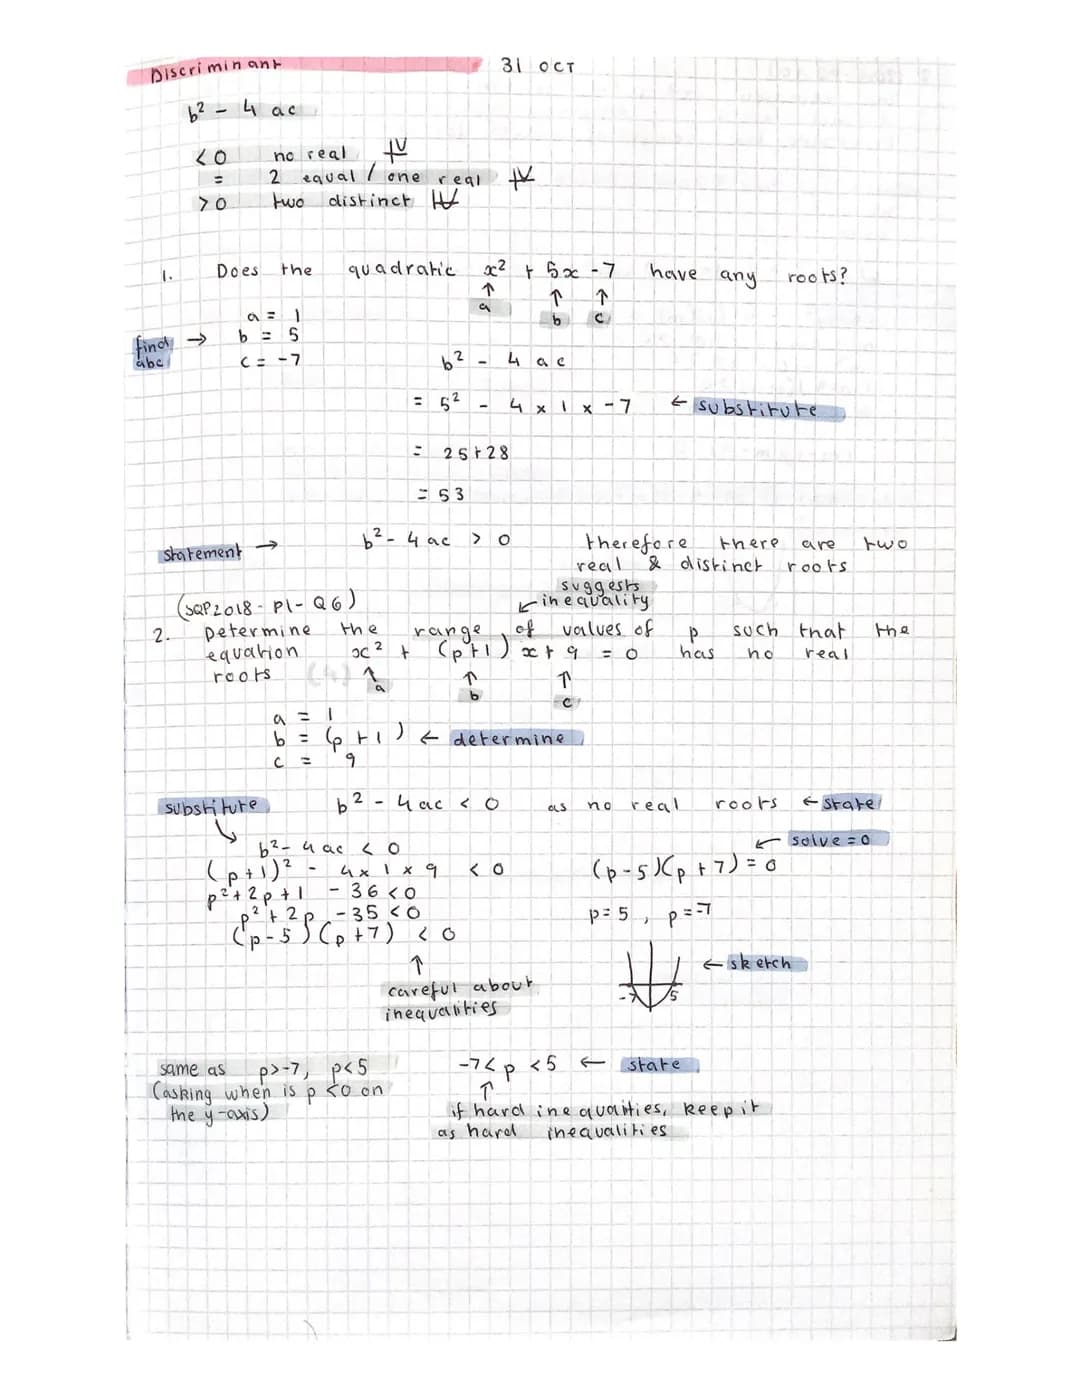 Discriminant 31 OCT
b² - 4ac
<0 no real
= 2 equal / one real
>0 two distinct
1. Does the quadratic x² + 5x - 7 have any roots?
↑ ↑ ↑
a b c
a = 1
find abc → b = 5
c = -7
b² - 4ac
= 5² - 4 x 1 x -7 ← substitute
= 25+28
= 53
statement → b² - 4ac > 0 therefore there are two
real & distinct roots
suggests
(SQP2018 - P1 - Q6) ↙ inequality
2. Determine the range of values of p such that the
equation x² + (p+1)x + 9 = 0 has no real
roots (4) ↑ ↑ ↑
a b c
a = 1
b = (p+1) ← determine
c = 9
substitute b² - 4ac < 0 as no real roots ← state
b² - 4ac < 0 ↙ solve = 0
(p+1)² - 4 x 1 x 9 < 0 (p-5)(p+7) = 0
p² + 2p + 1 - 36 < 0
p² + 2p - 35 < 0 p = 5, p = -7
(p-5)(p+7) < 0
↑ ← sketch
careful about -7 5
inequalities
same as p>-7, p<5 -7 < p < 5 ← state
(asking when is p <0 on ↑
the y-axis) if hard inequalities, keep it
as hard inequalities